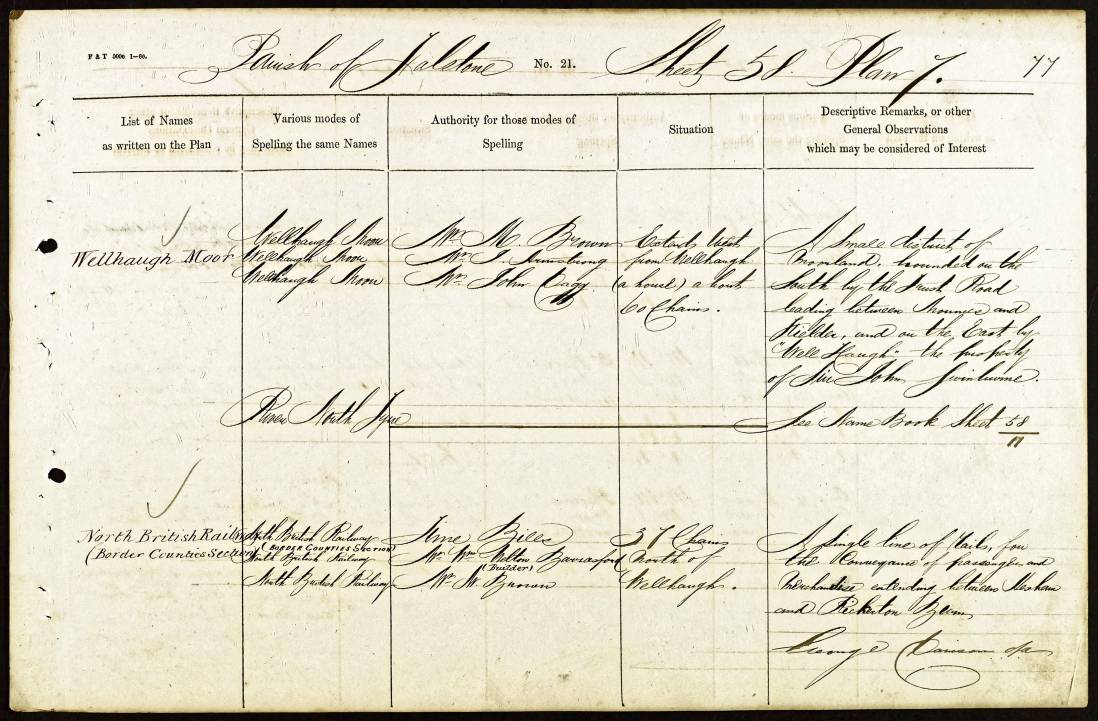 F & T 5000 1—60.
Parish of Falstone No. 21. Sheet 58. Plan 7. 77
List of Names
as written on the Plan
Various modes of
Spelling the same Names
Authority for those modes of
Spelling
Situation
Descriptive Remarks, or other
General Observations
which may be considered of Interest
Wellhaugh Moor
Wellhaugh Moor
Wellhaugh Moor
Wellhaugh Moor
Mr. M. Brown
Mr. J. Armstrong
Mr. John Dagg
Extends West
from Wellhaugh
(a house) about
60 Chains.
A small district of
Moorland, bounded on the
South by the Trust Road
leading between Mounces and
Kielder, and on the East by
"Well Haugh" the property
of Sir John Swinburne.
River North Tyne
See Name Book Sheet 58/11
North British Railway
(Border Counties Section)
North British Railway
(BORDER COUNTIES SECTION)
North British Railway
North British Railway
Time Bills
Mr. Wm. Welton Barrasford
(Builder)
Mr. W. Brown
37 Chains
North of
Wellhaugh.
A single line of Rails, for
the Conveyance of passengers and
Merchandise extending between Hexham
and Rickerton Burn
George Davison